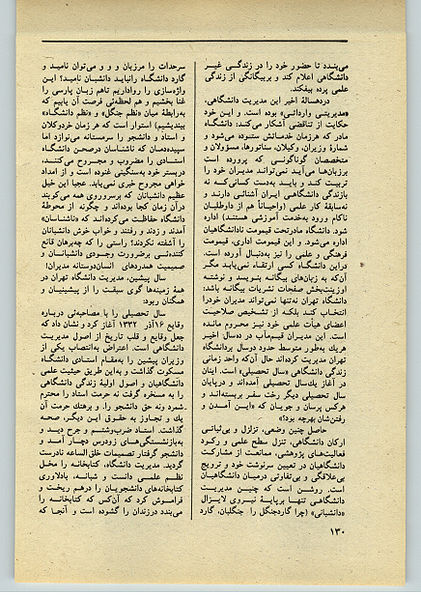 می‌بندد تا حضور خود را در زندگی غیر
دانشگاهی اعلام کند و بریگانگی از زندگی
علمی پرده بیفکند.
در دههسالهٔ اخیر این مدیریت دانشگاهی،
«مدیریتی وارداتی» بوده است. و این خود
حکایت از تناقضی آشکار می‌کند: دانشگاه
مادر که هرزمان خدماتش ستوده می‌شود و
شمارهٔ وزیران، وکیلان، سناتورها، مسؤولان و
متخصصان گوناگونی که پرورده است
برزبان‌ها می‌آید نمی‌تواند مدیران خود را
تربیت کند و باید به‌دست کسانی که نه
بازندگی دانشگاهی ایران آشنائی دارند و
نه‌سابقهٔ کار علمی (واحیاناً هم از داوطلبان
ناکام ورود به‌خدمت آموزشی هستند) اداره
شود. دانشگاه مادر تحت قیمومت نادانشگاهیان
اداره می‌شود. و این قیمومت اداری، قیمومت
فرهنگی و علمی را نیز به‌دنبال آورده است.
دراین دانشگاه کسی ارتقاء نمی‌یابد مگر
آن‌که به زبان‌های بیگانه بنویسد و نوشته
او زینت‌بخش صفحات نشریات بیگانه باشد:
دانشگاه تهران نه‌تنها نمی‌تواند مدیران خود را
انتخاب کند بلکه از تشخیص صلاحیت
اعضای هیأت علمی خود نیز محروم مانده
است. این مدیران قیم‌مآب در ده‌سال اخیر
هر یك به‌طور متوسط حدود دوسال بردانشگاه
تهران مدیریت کرده‌اند حال آن‌که واحد زمانی
زندگی دانشگاهی «سال تحصیلی» است. اینان
در آغاز یك‌سال تحصیلی آمده‌اند و درپایان
سال تحصیلی دیگر رخت سفر بربسته‌اند و
هرکس پرسان و جویان که «این آمدن و
رفتن‌شان بهرچه بود؟»
حاصل چنین وضعی، تزلزل و بی‌ثباتی
ارکان دانشگاهی، تنزل سطح علمی و رکود
فعالیت‌های پژوهشی، ممانعت از مشارکت
دانشگاهیان در تعیین سرنوشت خود و ترویج
بی‌علاقگی و بی‌تفاوتی درمیان دانشگاهیان
است. روشن است که چنین مدیریت
دانشگاهی تنها برپایهٔ نیروی لایزال
«دانشبانی» (چرا گاردجنگل را جنگلبان، گارد
سرحدات را مرزبان و و و می‌توان نامید و
گارد دانشگاه رانباید دانشبان نامید؟ این
واژه‌سازی را رواداریم تاهم زبان پارسی را
غنا بخشیم و هم لحظه‌ئی فرصت آن یابیم که
به‌رابطهٔ میان «نظم جنگل» و «نظم دانشگاه»
بیندیشیم) استوار است که هر زمان خردوکلان
و استاد و دانشجو را سرمستانه می‌نوازد اما
سپیده‌دمان که ناشناسان درصحن دانشگاه
استادی را مضروب و مجروح می‌کنند،
دربستر خود به‌سنگینی غنوده است و از امداد
خواهی مجروح خبری نمی‌یابد. عجبا این خیل
عظیم دانشبانان که برسرو‌روی همه می‌کوبند
درآن زمان کجا بوده‌اند و چگونه از محوطهٔ
دانشگاه حفاظت می‌کرده‌اند که «ناشناسان»
آمدند و زدند و رفتند و خواب خوش دانشبانان
را آشفته نکردند؟ راستی را که چه‌برهان قانع
کننده‌ئی برضرورت وجودی دانشبانان و
صمیمیت هدر‌دهای انسان‌دوستانه مدیران!
سال پیشین، مدیریت دانشگاه تهران در
همهٔ زمینه‌ها گوی سبقت را از پیشینیان و
همگنان ربود:
سال تحصیلی را با مصاحبه‌ئی درباره
وقایع ۱۶آذر ۱۳۳۲ آغاز کرد و نشان داد که
جعل وقایع و قلب تاریخ از اصول مدیریت
دانشگاهی است. اعتراض به‌انتصاب یکی از
وزیران پیشین را به‌مقام استادی دانشگاه
مسکوت گذاشت و به‌این طریق حیثیت علمی
دانشگاهیان و اصول اولیهٔ زندگی دانشگاهی
را به مسخره گرفت نه حرمت استاد را محترم
شمرد و نه حق دانشجو را. و برهتك حرمت آن
یك و تجاوز به حقوق این دیگر، صحه
گذاشت. استاد ضرب‌وشتم و جرح دید و
به‌بازنشستگی‌های زودرس دچار آمد و
دانشجو گرفتار تصمیمات خلق‌الساعه نادرست
گردید. مدیریت دانشگاه، کتابخانه را مخل
نظم علمی دانست و شبانه، بادلاوری
کتابخانه‌های دانشجویان را درهم ریخت و
فراموش کرد که آن‌کس که کتابخانه را
می‌بندد در زندان را گشوده است و آنجا که
۱۳۰